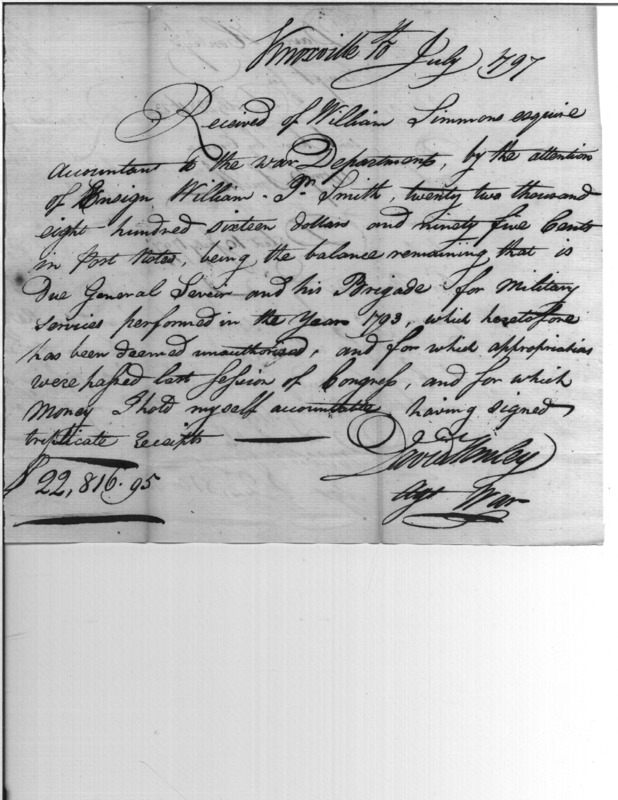 Knoxville 10th July 1797
Received of William Simmons esquire
accountant to the war Department, by the attention
of Ensign William Pr. Smith, twenty two thousand
eight hundred sixteen dollars and ninety five Cents
in Post Notes, being the balance remaining that is
Due General Sevier and his Brigade for Military
services performed in the Year 1793, which heretofore
has been deemed unauthorised, and for which appropriations
were passed last Session of Congress, and for which
Money I hold myself accountable having signed
triplicate receipts
David Henley
Agt War
$ 22,816.95